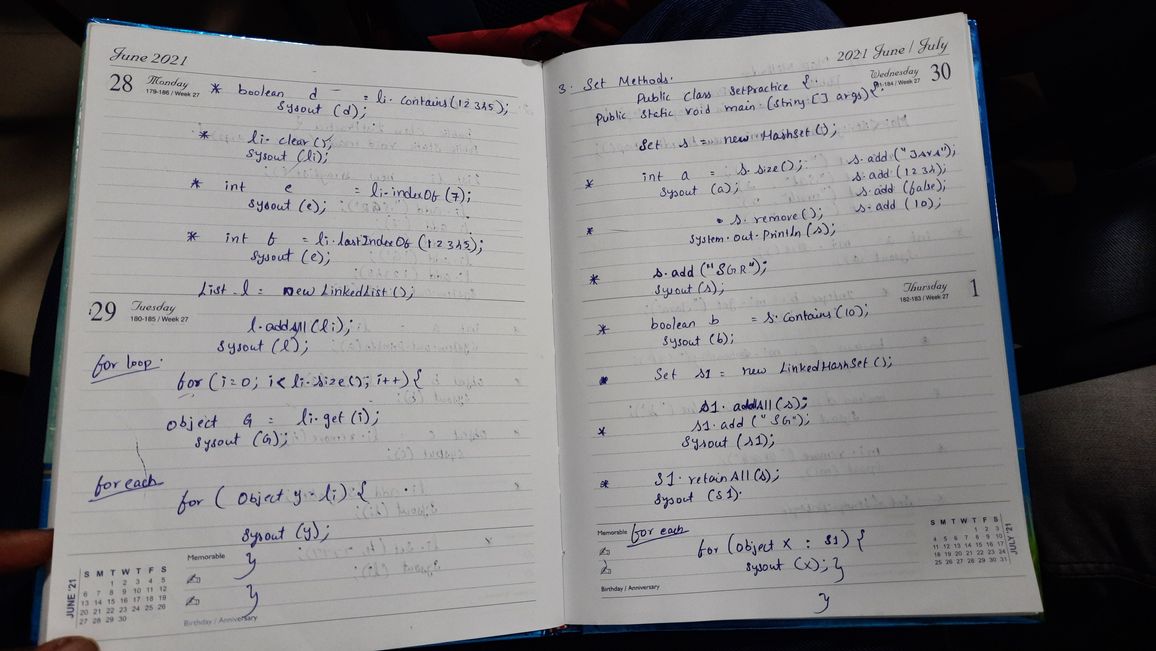 June 2021
28 Monday
179-186 / Week 27
* boolean d = li. contains(12345);
Sysout (d);
* li. clear();
Sysout (li);
* int e = li.indexOf (7);
Sysout (e);
* int f = li.lastIndexOf (12345);
Sysout (e);
List l = new LinkedList ();
29 Tuesday
180-185 / Week 27
l. addAll (li);
Sysout (l);
for loop.
for (i=0; i< li.size(); i++) {
Object G = li.get (i);
Sysout (G);
for each
for ( Object y - li) {
Sysout (y);
}
}
Memorable
Birthday / Anniversary
JUNE '21
S M T W T F S
1 2 3 4 5
6 7 8 9 10 11 12
13 14 15 16 17 18 19
20 21 22 23 24 25 26
27 28 29 30
2021 June / July
Wednesday 30
181-184 / Week 27
3. Set Methods.
Public Class SetPractice {
Public Static void main (String [] args) {
Set s = new HashSet ();
* int a = s. size();
Sysout (a);
s. add ("Java");
s. add (1234);
s. add (false);
s. add (10);
* s. remove ();
System. out. Println (s);
* s. add ("SGR");
Sysout (s);
Thursday 1
182-183 / Week 27
* boolean b = s. contains (10);
Sysout (b);
* Set s1 = new LinkedHashSet ();
s1. addAll (s);
* s1. add ("SG");
Sysout (s1);
* S1. retainAll (s);
Sysout (S1).
Memorable
for each
for (object x : s1) {
Sysout (x); }
}
Birthday / Anniversary
S M T W T F S
1 2 3
4 5 6 7 8 9 10
11 12 13 14 15 16 17
18 19 20 21 22 23 24
25 26 27 28 29 30 31
JULY '21